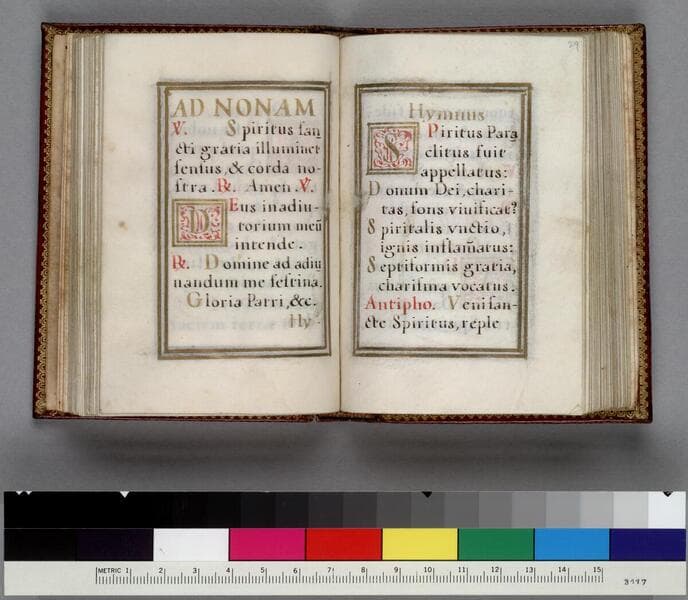 AD NONAM
℣. Spiritus ſan
cti gratia illuminet
ſenſus, & corda no-
ſtra. ℟. Amen. ℣.
DEus in adiu-
torium meũ
intende.
℟. Domine ad adiu
uandum me feſtina.
Gloria Patri, &c.
Hy-
29
Hymnus
SPiritus Para
clitus fuit
appellatus:
Donum Dei, chari-
tas, fons viuificat9:
Spiritalis vnctio,
ignis inflam̃atus:
Septiformis gratia,
chariſma vocatus.
Antipho. Veni ſan-
cte Spiritus, reple
METRIC 1 2 3 4 5 6 7 8 9 10 11 12 13 14 15